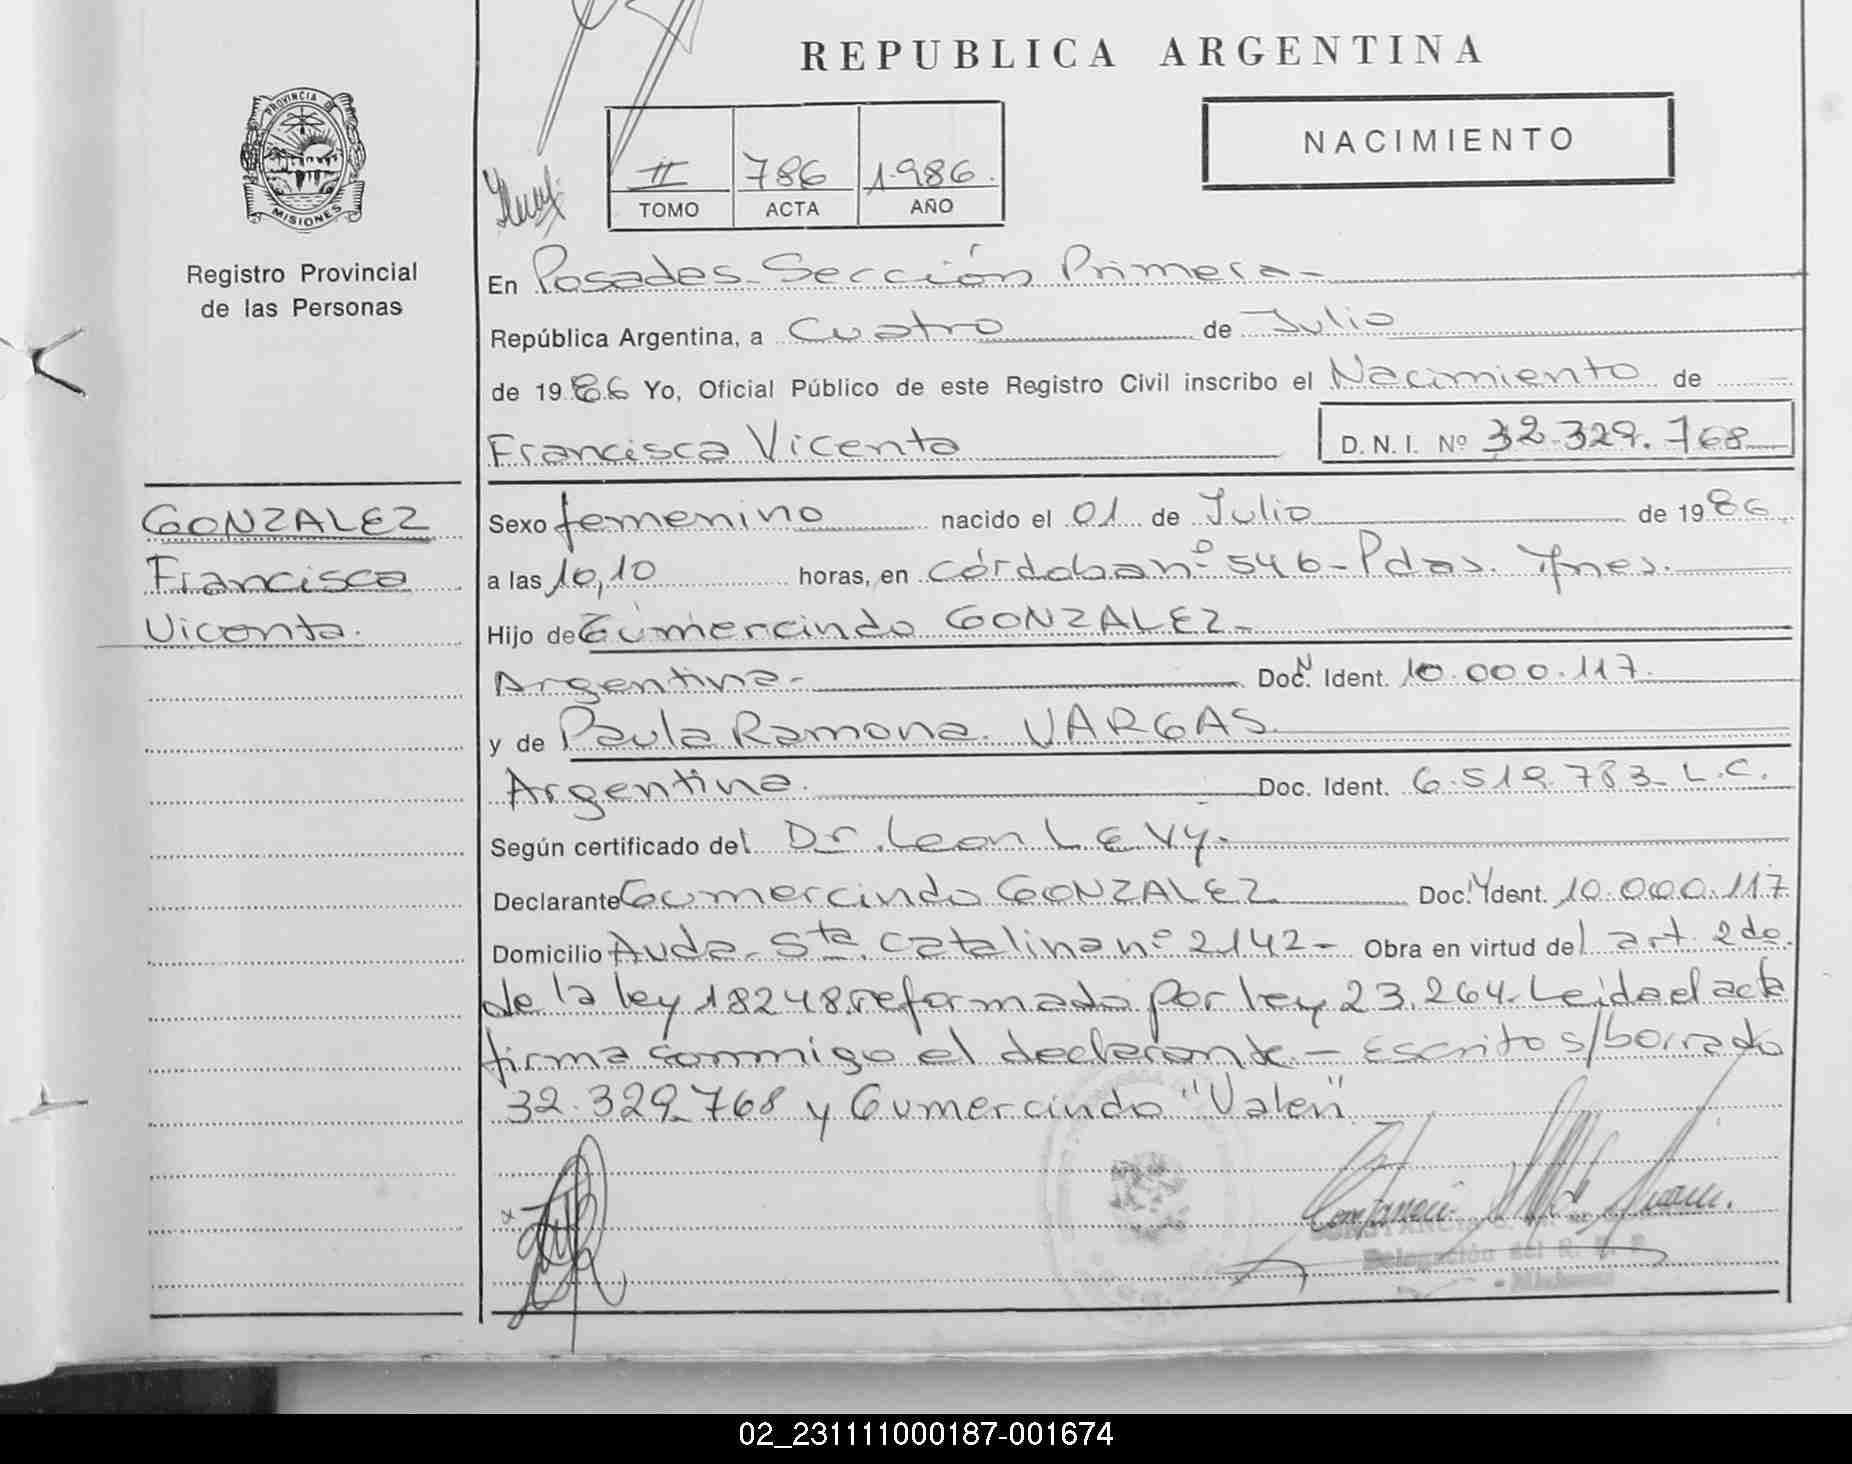 REPUBLICA ARGENTINA
PROVINCIA DE
MISIONES
Registro Provincial
de las Personas
NACIMIENTO
II 786 1986.
TOMO ACTA AÑO
En Posadas-Sección Primera-
República Argentina, a Cuatro de Julio
de 1986 Yo, Oficial Público de este Registro Civil inscribo el Nacimiento de
Francisca Vicenta
D. N. I. Nº 32.329.768
GONZALEZ
Francisca
Vicenta.
Sexo femenino nacido el 01 de Julio de 1986
a las 10,10 horas, en córdoba nº 546-Pdas. Mnes.
Hijo de Gumercindo GONZALEZ-
Argentina- Doc. N Ident. 10.000.117.
y de Paula Ramona VARGAS.
Argentina. Doc. Ident. 6.519.783-L.C.
Según certificado del Dr. Leon LEVY.
Declarante Gumercindo GONZALEZ Doc. N Ident. 10.000.117
Domicilio Avda. Sta. Catalina nº 2142- Obra en virtud del art. 2do.
de la ley 18248 reformada por ley 23.264.-Leida el acta
firma conmigo el declarante.- Escrito s/borrado
32.329.768 y Gumercindo "Valen"
Delegación del R. P. P.
- Misiones
02_231111000187-001674